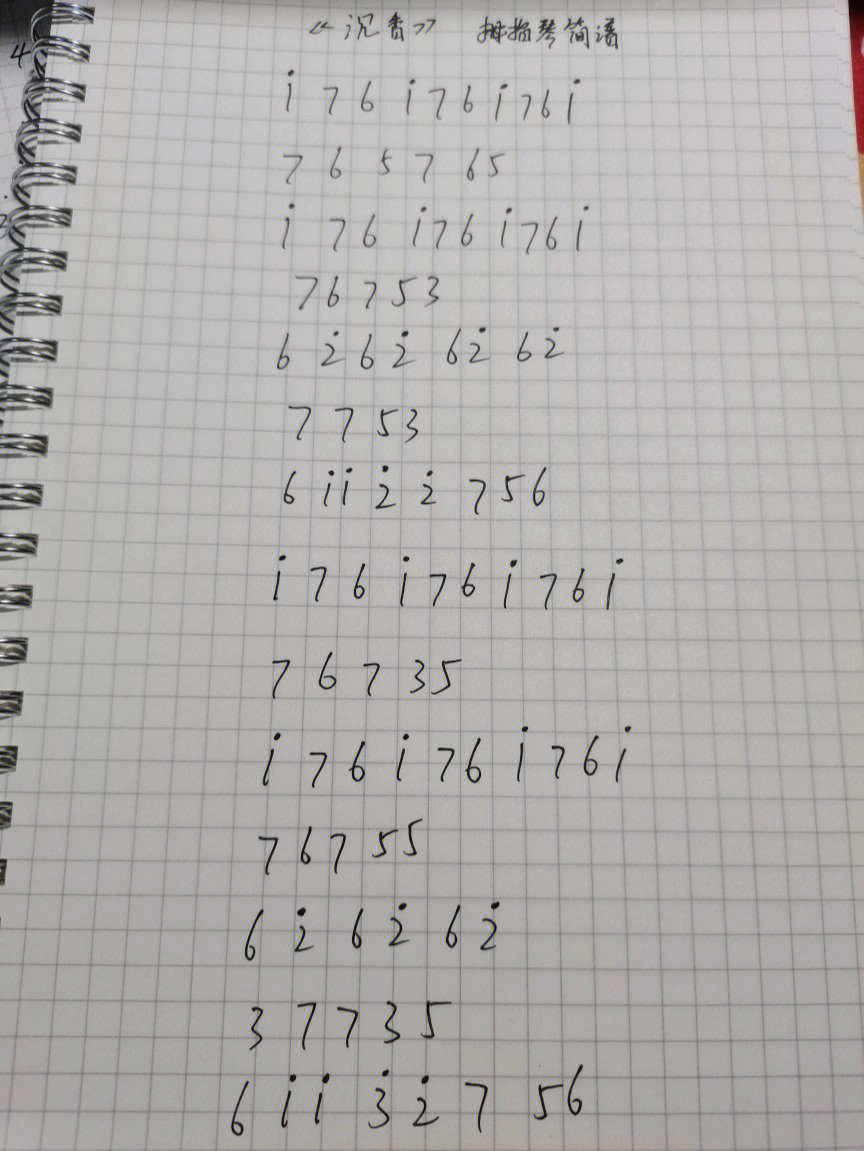 《沉香》 拇指琴简谱
i̇ 7 6 i̇ 7 6 i̇ 7 6 i̇
7 6 5 7 6 5
i̇ 7 6 i̇ 7 6 i̇ 7 6 i̇
7 6 7 5 3
6 2̇ 6 2̇ 6 2̇ 6 2̇
7 7 5 3
6 i̇ i̇ 2̇ 2̇ 7 5 6
i̇ 7 6 i̇ 7 6 i̇ 7 6 i̇
7 6 7 3 5
i̇ 7 6 i̇ 7 6 i̇ 7 6 i̇
7 6 7 5 5
6 2̇ 6 2̇ 6 2̇
3 7 7 3 5
6 i̇ i̇ 3̇ 2̇ 7 5 6